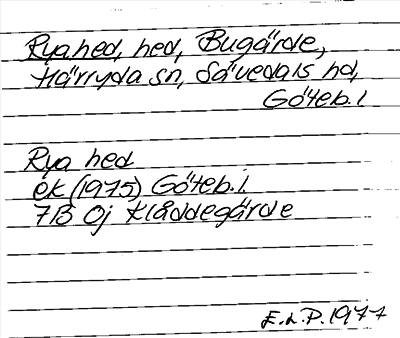 Rya hed, hed, Bugärde,
Härryda sn, Sävedals hd,
Göteb. l
Rya hed
ek (1975) Göteb. l.
7B 0j Klåddegärde
E.L.P. 1977